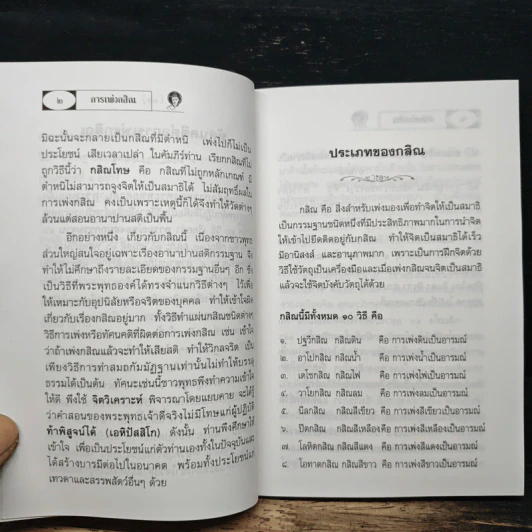 ๒ การเพ่งกสิณ
มิฉะนั้นจะกลายเป็นกสิณที่มีตำหนิ เพ่งไปก็ไม่เป็น
ประโยชน์ เสียเวลาเปล่า ในคัมภีร์ท่าน เรียกกสิณที่ไม่
ถูกวิธีนี้ว่า กสิณโทษ คือ กสิณที่ไม่ถูกหลักเกณฑ์ มี
ตำหนิไม่สามารถจูงจิตให้เป็นสมาธิได้ ไม่สัมฤทธิ์ผลใน
การเพ่งกสิณ คงเป็นเพราะเหตุนี้ก็ได้จึงทำให้วัดต่างๆ
ล้วนแต่สอนอานาปานสติเป็นพื้น
อีกอย่างหนึ่ง เกี่ยวกับกสิณนี้ เนื่องจากชาวพุทธ
ส่วนใหญ่สนใจอยู่เฉพาะเรื่องอานาปานสติกรรมฐาน จึง
ทำให้ไม่ศึกษาถึงรายละเอียดของกรรมฐานอื่นๆ อีก ซึ่ง
เป็นวิธีที่พระพุทธองค์ได้ทรงจำแนกวิธีต่างๆ ไว้เพื่อ
ให้เหมาะกับอุปนิสัยหรือจริตของบุคคล ทำให้เข้าใจผิด
เกี่ยวกับเรื่องกสิณอยู่มาก ทั้งวิธีทำแผ่นกสิณชนิดต่างๆ
วิธีการเพ่งหรือทัศนคติที่ผิดต่อการเพ่งกสิณ เช่น เข้าใจ
ว่าถ้าเพ่งกสิณแล้วจะทำให้เสียสติ ทำให้วิกลจริต เป็น
เพียงวิธีการทำสมถกัมมัฏฐานเท่านั้นไม่ทำให้บรรลุ
ธรรมได้เป็นต้น ทัศนะเช่นนี้ชาวพุทธพึงทำความเข้าใจ
ให้ดี พึงใช้ จิตวิเคราะห์ พิจารณาโดยแยบคาย จะได้รู้
ว่าคำสอนของพระพุทธเจ้าดีจริงไม่มีโทษแก่ผู้ปฏิบัติ
ท้าพิสูจน์ได้ (เอหิปัสสิโก) ดังนั้น ท่านพึงศึกษาให้
เข้าใจ เพื่อเป็นประโยชน์แก่ตัวท่านเองทั้งในปัจจุบันและ
ได้สร้างบารมีต่อไปในอนาคต พร้อมทั้งประโยชน์แก่
เทวดาและสรรพสัตว์อื่นๆ ด้วย
ประเภทของกสิณ
กสิณ คือ สิ่งสำหรับเพ่งมองเพื่อทำจิตให้เป็นสมาธิ
เป็นกรรมฐานชนิดหนึ่งที่มีประสิทธิภาพมากในการนำจิต
ให้เข้าไปยึดติดอยู่กับกสิณ ทำให้จิตเป็นสมาธิได้เร็ว
มีอานิสงส์ และอานุภาพมาก เพราะเป็นการฝึกจิตด้วย
วิธีใช้วัตถุเป็นเครื่องมือและเมื่อเพ่งกสิณจนจิตเป็นสมาธิ
แล้วจะใช้จิตบังคับวัตถุได้ด้วย
กสิณนี้มีทั้งหมด ๑๐ วิธี คือ
๑. ปฐวีกสิณ กสิณดิน คือ การเพ่งดินเป็นอารมณ์
๒. อาโปกสิณ กสิณน้ำ คือ การเพ่งน้ำเป็นอารมณ์
๓. เตโชกสิณ กสิณไฟ คือ การเพ่งไฟเป็นอารมณ์
๔. วาโยกสิณ กสิณลม คือ การเพ่งลมเป็นอารมณ์
๕. นีลกสิณ กสิณสีเขียว คือ การเพ่งสีเขียวเป็นอารมณ์
๖. ปีตกสิณ กสิณสีเหลือง คือ การเพ่งสีเหลืองเป็นอารมณ์
๗. โลหิตกสิณ กสิณสีแดง คือ การเพ่งสีแดงเป็นอารมณ์
๘. โอทาตกสิณ กสิณสีขาว คือ การเพ่งสีขาวเป็นอารมณ์